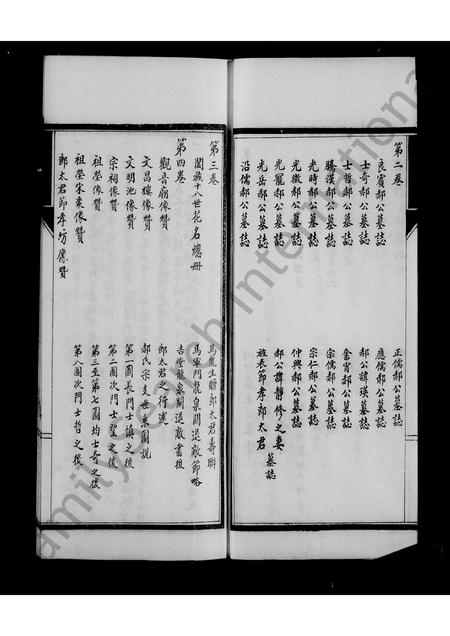 第二卷
良賓郝公墓誌
士奇郝公墓誌
士哲郝公墓誌
騰漢郝公墓誌
光時郝公墓誌
光徽郝公墓誌
光寵郝公墓誌
光岳郝公墓誌
沿儒郝公墓誌
正儒郝公墓誌
應儒郝公墓誌
郝公諱瑛墓誌
奮霄郝公墓誌
宗儒郝公墓誌
宗仁郝公墓誌
仲興郝公墓誌
郝公諱靜修之妻
旌表節孝郎太君
墓誌
第三卷
闔族十八世花名總册
第四卷
觀音廟像贊
文昌樓像贊
文明池像贊
宗祠像贊
祖塋像贊
祖塋宋東像贊
郎太君節孝坊像贊
馬龍生贈郎太君壽聯
馬軍門龍泉關退敵節略
書龍泉關退敵書後
郎太君之行述
郝氏宗支世系圖説
第一圖長門士滇之後
第二圖次門士賢之後
第三至第七圖均士奇之後
第八圖次門士哲之後
FamilySearch International